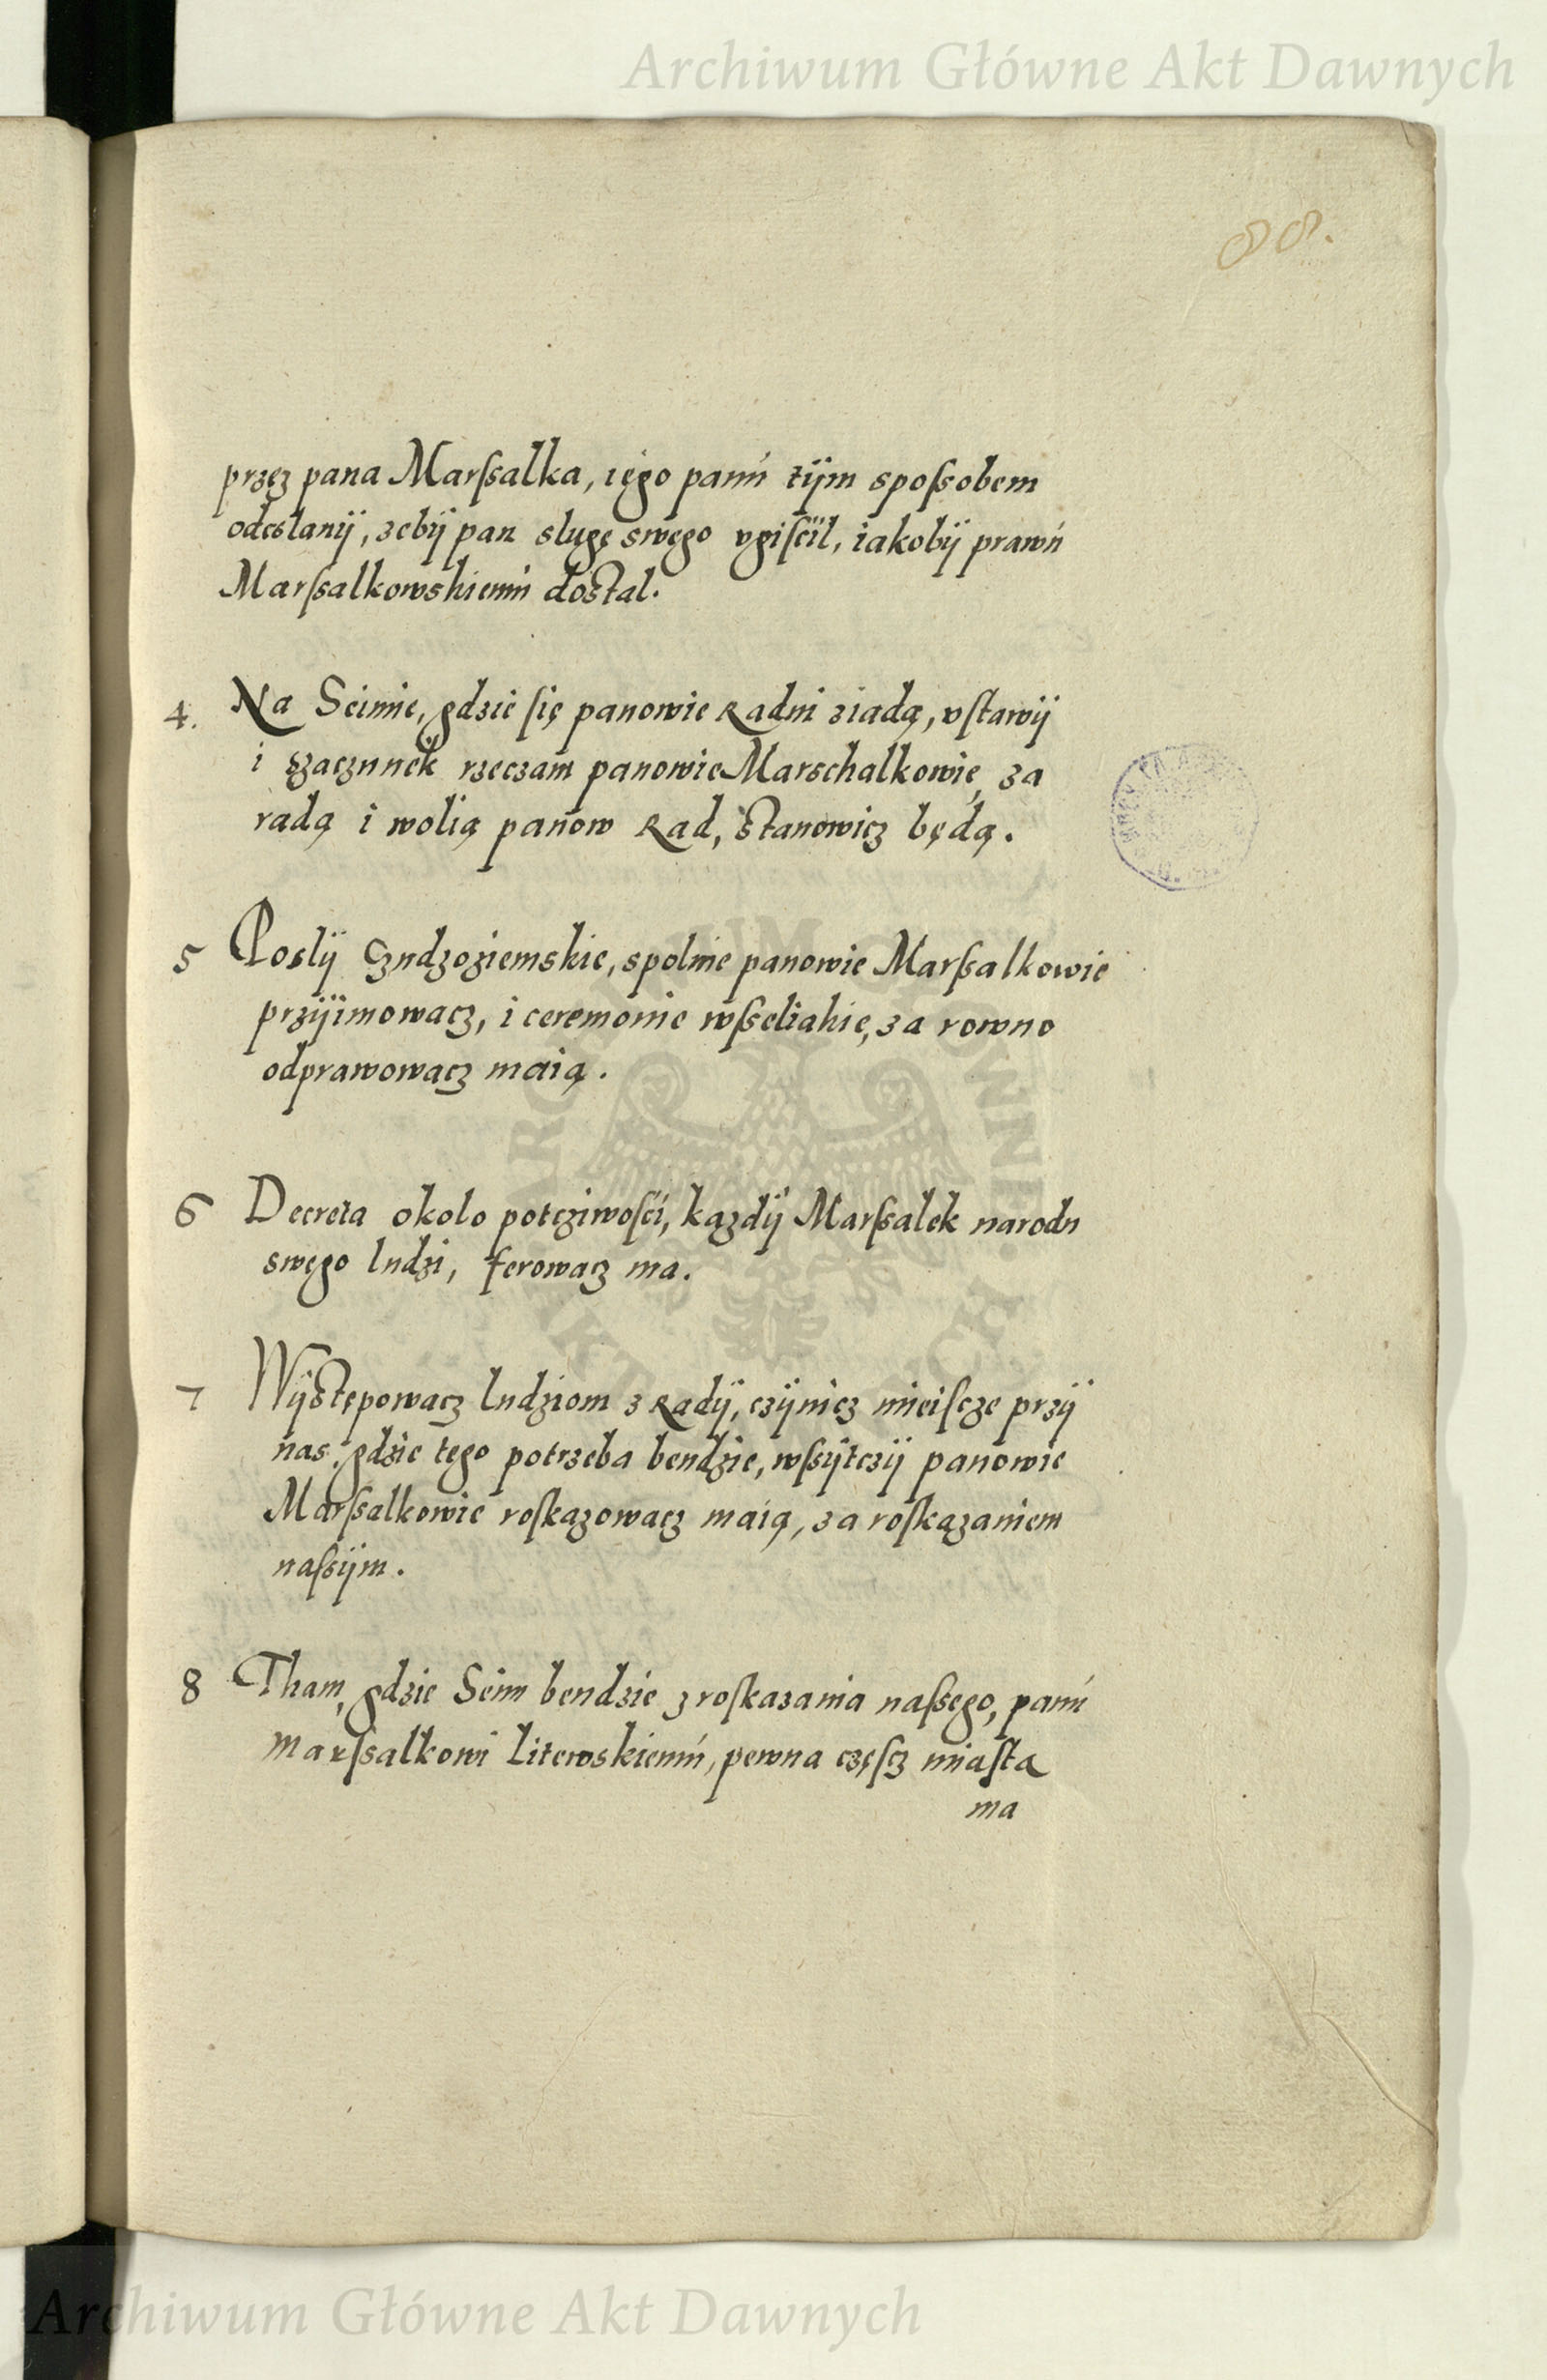 Archiwum Główne Akt Dawnych
88.
przez pana Marſsalka, iego panu tÿm spoſsobem
odeslanÿ, zebÿ pan slugę swego vgiſcil, iakobÿ prawu
Marſsalkowskiemu dostal.
4. Na Seimie, gdzie ſię panowie Radni ziadą, vſtawÿ
i szaczunek rzeczam panowie Marschalkowie, za
radą i wolią panow Rad, stanowicz będą.
5 Poslÿ Czudzoziemskie, spolnie panowie Marſsalkowie
przÿimowacz, i ceremonie wſseliakie, za rowno
odprawowacz maią.
6 Decreta okolo potcziwoſci, kazdÿ Marſsalek narodu
swego ludzi, ferowacz ma.
7 Wÿstępowacz ludziom z Radÿ, czÿnicz mieiſcze przÿ
nas, gdzie tego potrzeba bendzie, wſsÿtczÿ panowie
Marſsalkowie roſkazowacz maią, za roſkazaniem
naſsÿm.
8 Tham, gdzie Seim bendzie z roſkazania naſsego, panu
Marſsalkowi Litewskiemu, pewna częſcz miaſta
ma
Archiwum Główne Akt Dawnych